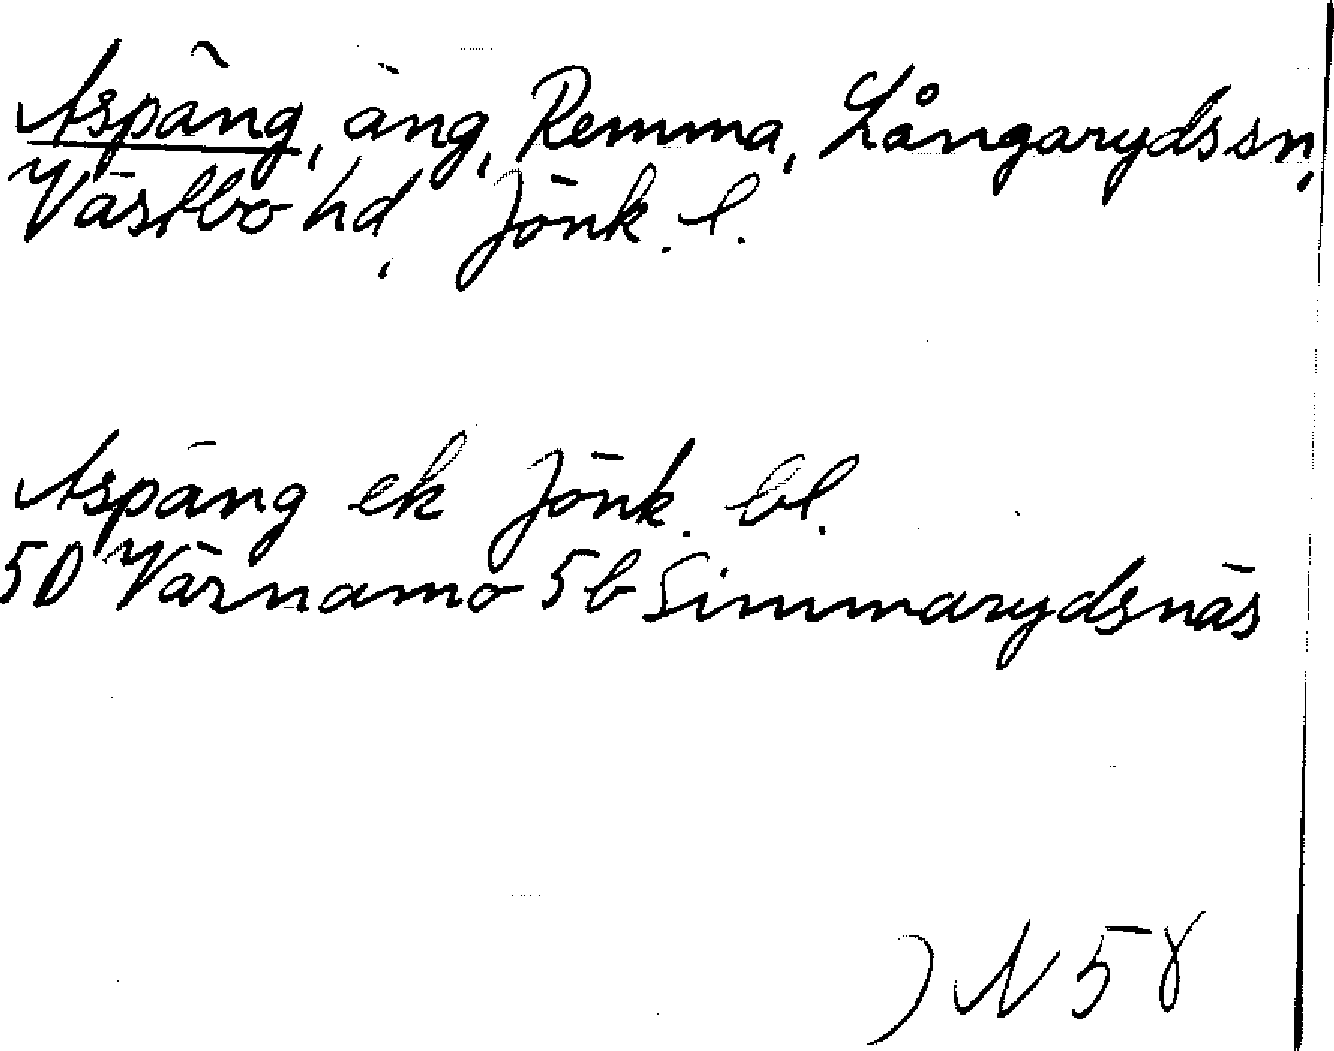 Aspäng, äng, Remma, Långarydssn,
Västbo hd, Jönk. l.
Aspäng ek Jönk. bl.
5D Värnamo 5b Simmarydsnäs
JN 58